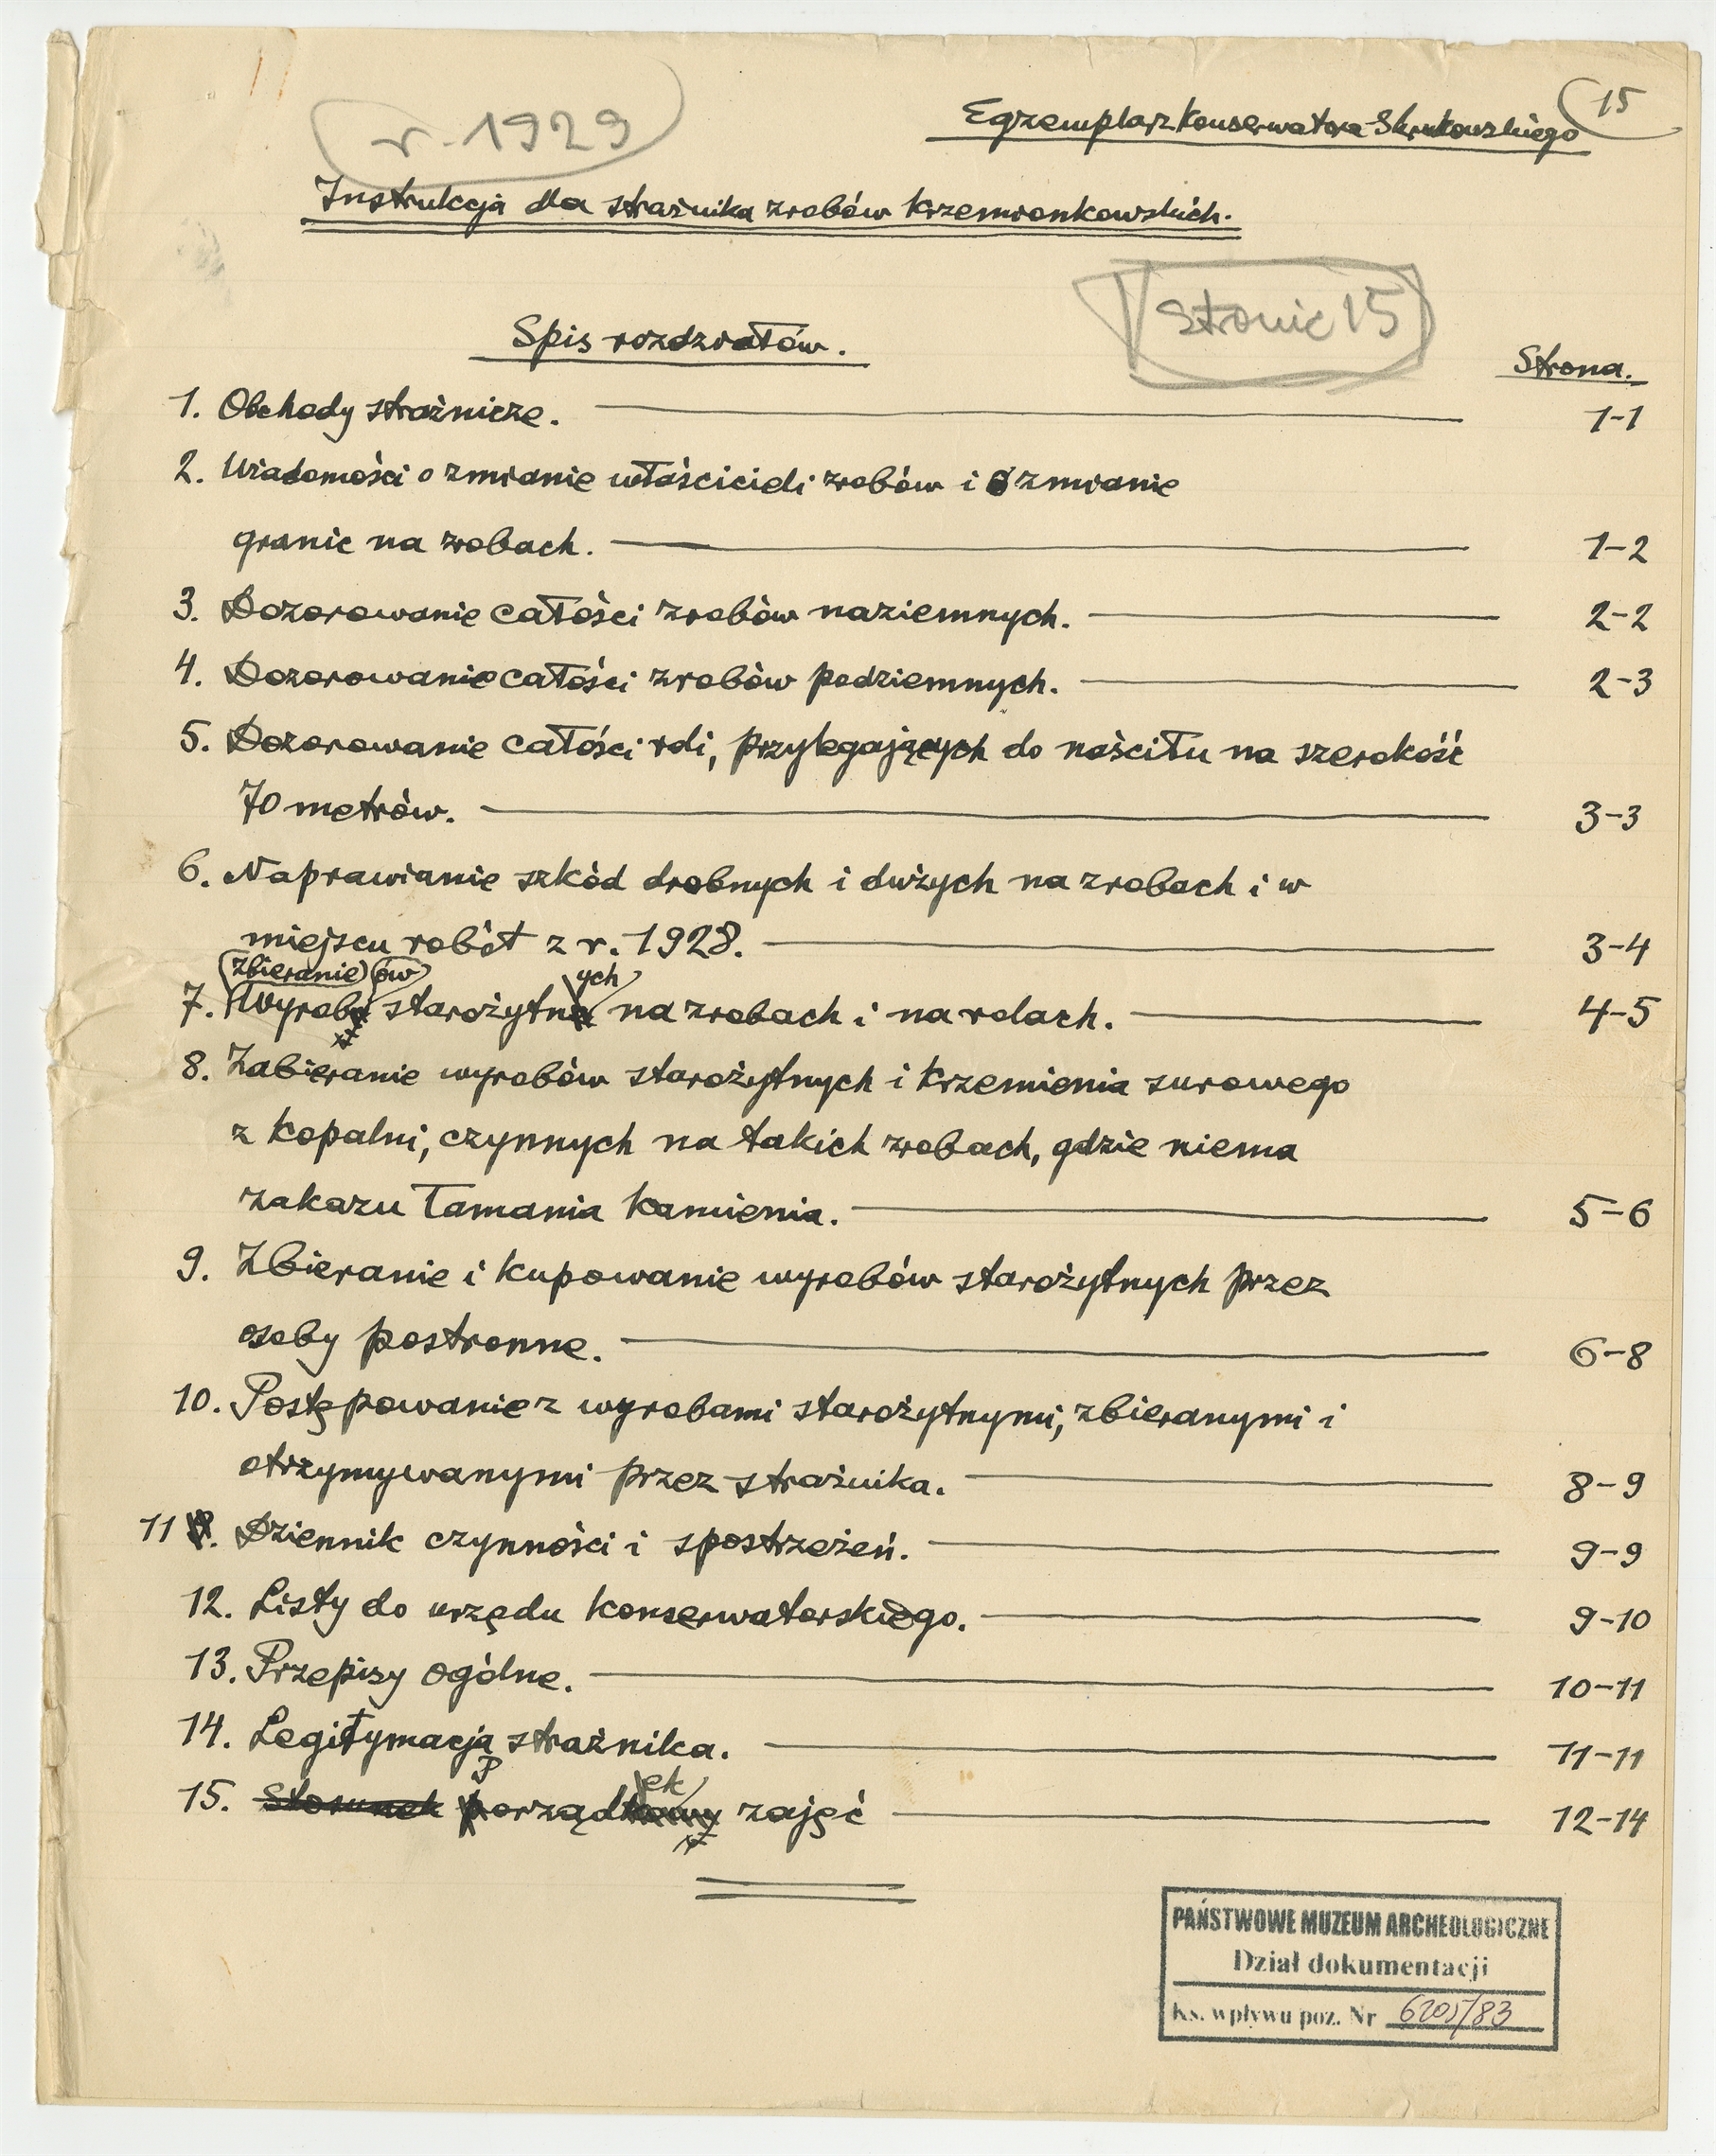 r. 1929
15
Egzemplarz Konserwatora
Instrukcja dla strażnika zrobów krzemionkowskich.
Stronic 15
Spis rozdziałów.
Strona.
1. Obchody strażnicze. 1-1
2. Wiadomości o zmianie właścicieli zrobów i o zmianie
granic na zrobach. 1-2
3. Dozorowanie całości zrobów naziemnych. 2-2
4. Dozorowanie całości zrobów podziemnych. 2-3
5. Dozorowanie całości roli, przylegających do na szerokość
70 metrów. 3-3
6. Naprawianie szkód drobnych i dużych na zrobach i w
miejscu robót z r. 1928. 3-4
7. Zbieranie wyrobów starożytnych na zrobach i na rolach. 4-5
8. Zabieranie wyrobów starożytnych i krzemienia surowego
z kopalni, czynnych na takich zrobach, gdzie niema
zakazu łamania kamienia. 5-6
9. Zbieranie i kupowanie wyrobów starożytnych przez
osoby postronne. 6-8
10. Postępowanie z wyrobami starożytnymi, zbieranymi i
otrzymywanymi przez strażnika. 8-9
11. Dziennik czynności i spostrzeżeń. 9-9
12. Listy do urzędu konserwatorskiego. 9-10
13. Przepisy ogólne. 10-11
14. Legitymacja strażnika. 11-11
15. Stosunek Porządek zajęć 12-14
PAŃSTWOWE MUZEUM ARCHEOLOGICZNE
Dział dokumentacji
Ks. wpływu poz. Nr 6205/83